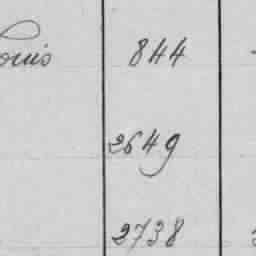 ouis 844
2649
2738